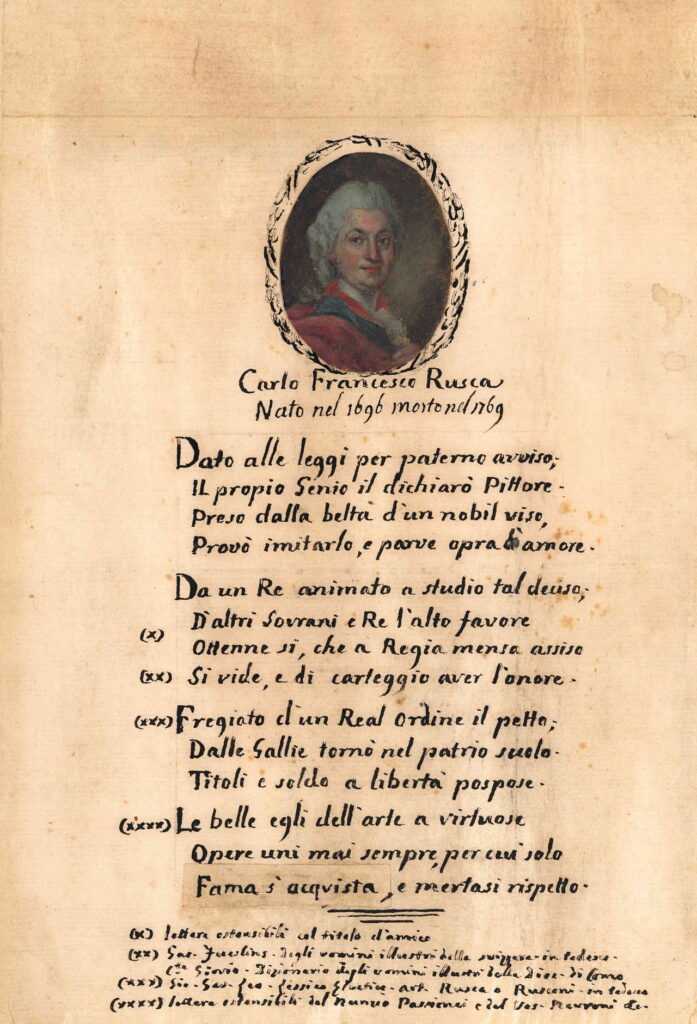 Carlo Francesco Rusca
Nato nel 1696 morto nel 1769
Dato alle leggi per paterno avviso,
IL propio Genio il dichiarò Pittore.
Preso dalla beltà d'un nobil viso,
Provò imitarlo, e parve opra d'amore.
Da un Re animato a studio tal deciso,
D'altri Sovrani e Re l'alto favore
(x) Ottenne sì, che a Regia mensa assiso
(xx) Si vide, e di carteggio aver l'onore.
(xxx) Fregiato d'un Real Ordine il petto,
Dalle Gallie tornò nel patrio suolo.
Titoli e soldo a libertà pospose.
(xxxx) Le belle egli dell'arte a virtuose
Opere unì mai sempre, per cui solo
Fama s'acquista, e mertasi rispetto.
(x) lettere ostensibili col titolo d'amico
(xx) Gas. Fueslins. degli uomini illustri della svizzera in tedesco
Cte Giovio. Dizionario degli uomini illustri della Dioc. di Como
(xxx) Gio. Gas. art. Rusca o Rusconi in tedesco
(xxxx) lettere ostensibili del Nunzio Passionei e del